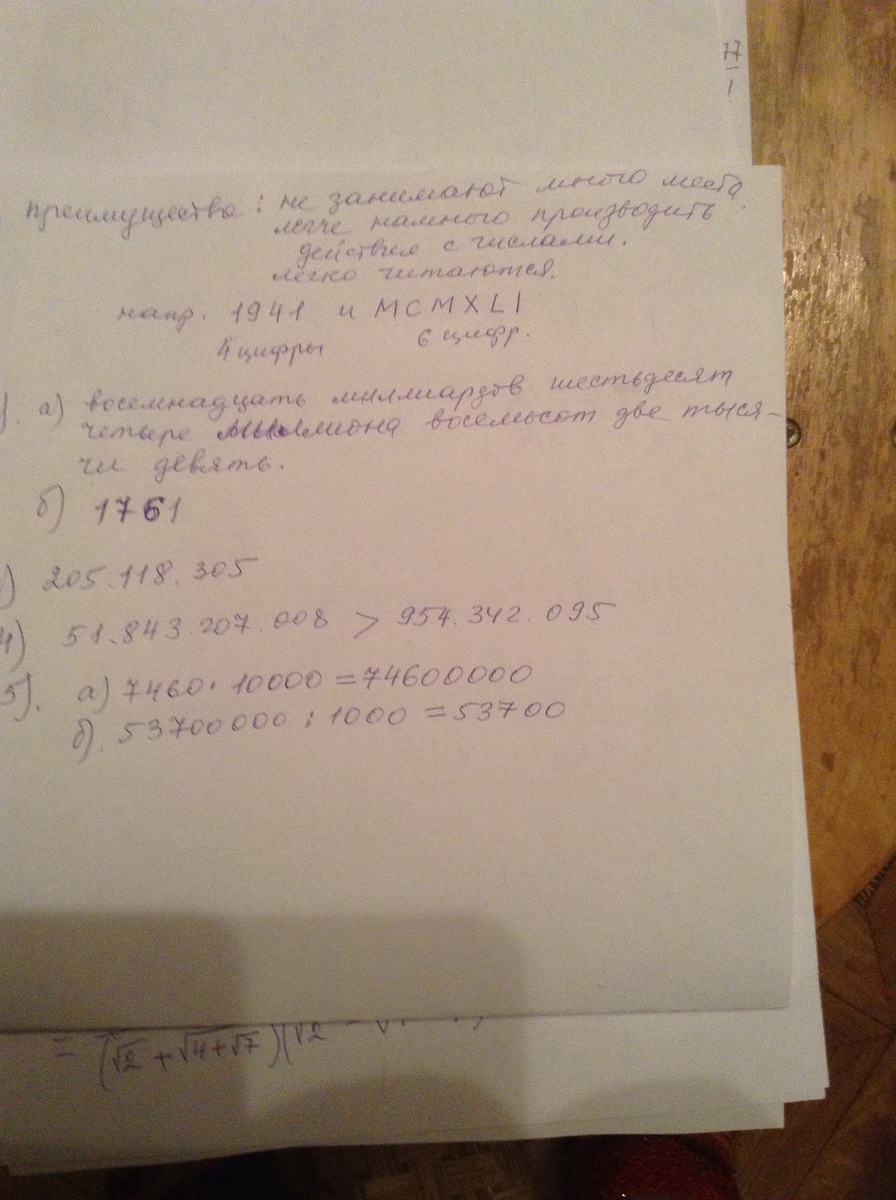 77
1
преимущества: не занимают много места.
легче намного производить
действия с числами.
легко читаются.
напр. 1941 и MCMXLI
4 цифры 6 цифр.
). а) восемнадцать миллиардов шестьдесят
четыре миллиона восемьсот две тыся-
чи девять.
б) 1761
) 205.118.305
4) 51.843.207.008 > 954.342.095
5). а) 7460 · 10000 = 74600000
б). 53700000 : 1000 = 53700
= (√2 + √4+√7)(√2 -